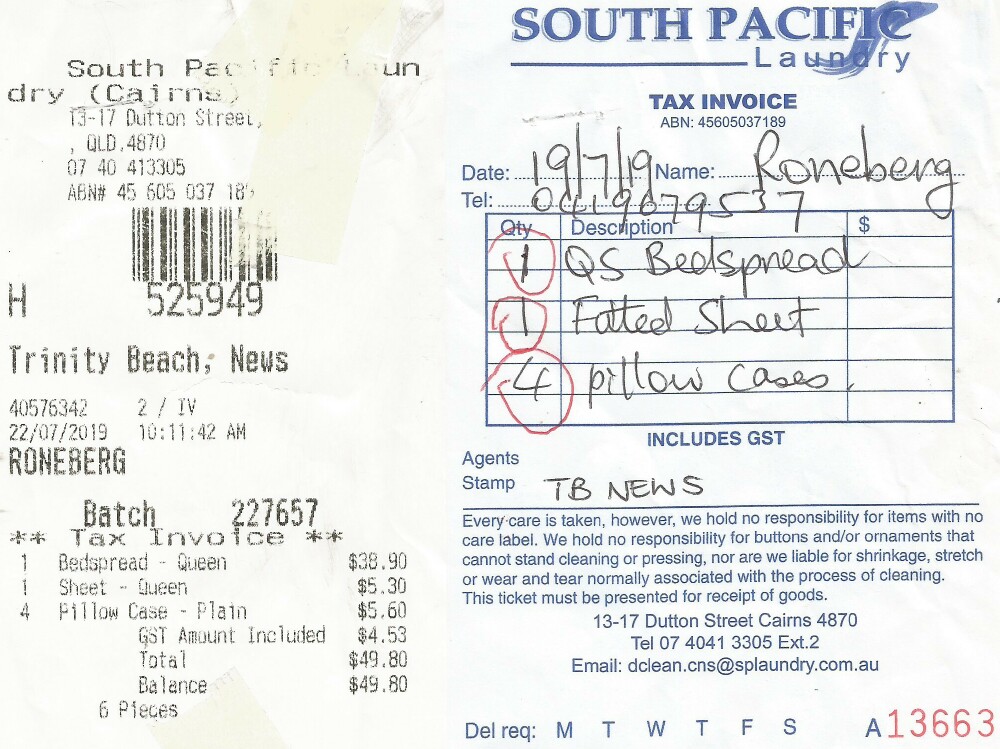 South Pacific Laun
dry (Cairns)
13-17 Dutton Street,
, QLD,4870
07 40 413305
ABN# 45 605 037 189
H 525949
Trinity Beach, News
40576342 2 / IV
22/07/2019 10:11:42 AM
RONEBERG
Batch 227657
** Tax Invoice **
1 Bedspread - Queen $38.90
1 Sheet - Queen $5.30
4 Pillow Case - Plain $5.60
GST Amount Included $4.53
Total $49.80
Balance $49.80
6 Pieces
SOUTH PACIFIC
Laundry
TAX INVOICE
ABN: 45605037189
Date: 19/7/19 Name: Roneberg
Tel: 0419679537
Qty Description $
1 QS Bedspread
1 Fitted Sheet
4 pillow cases.
INCLUDES GST
Agents
Stamp TB NEWS
Every care is taken, however, we hold no responsibility for items with no
care label. We hold no responsibility for buttons and/or ornaments that
cannot stand cleaning or pressing, nor are we liable for shrinkage, stretch
or wear and tear normally associated with the process of cleaning.
This ticket must be presented for receipt of goods.
13-17 Dutton Street Cairns 4870
Tel 07 4041 3305 Ext.2
Email: dclean.cns@splaundry.com.au
Del req: M T W T F S A13663